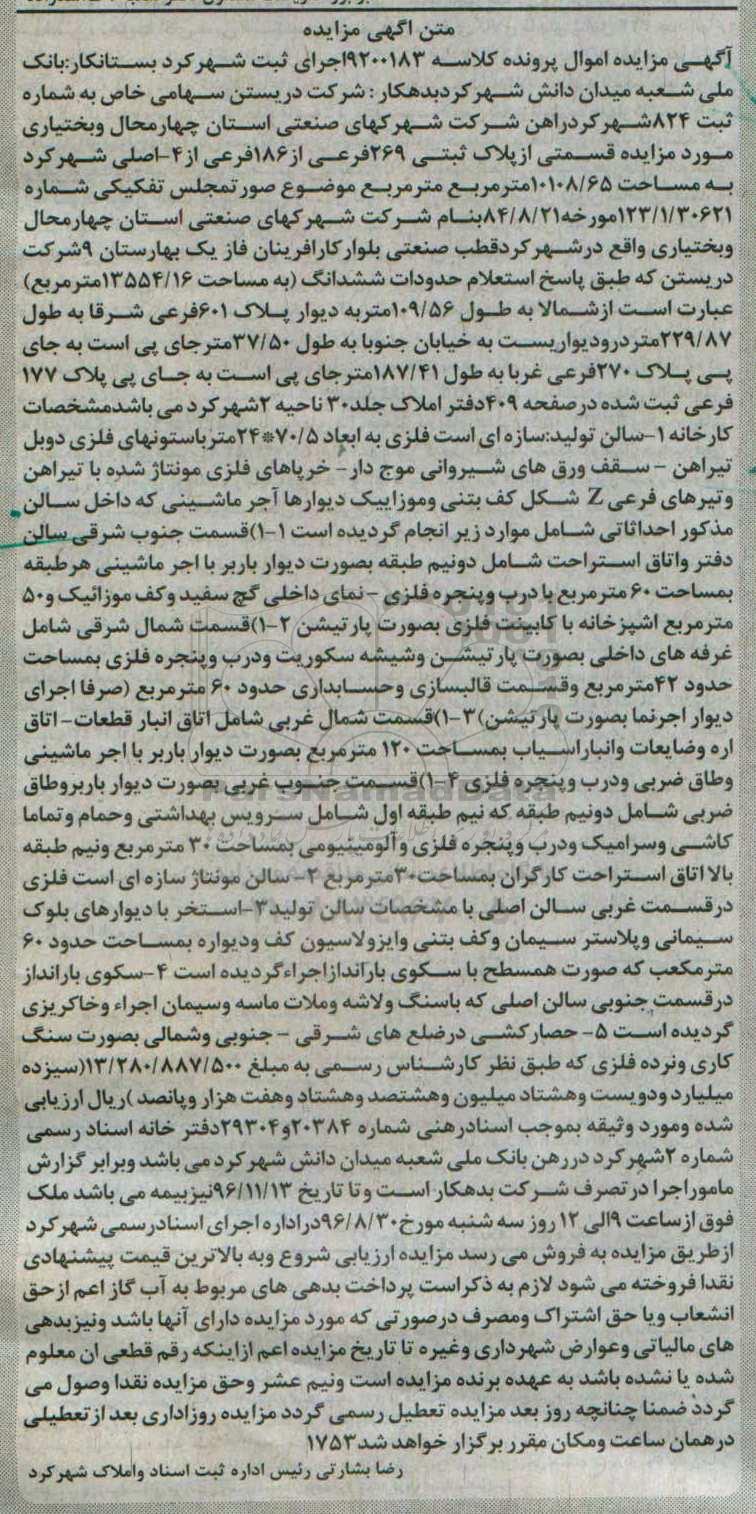 متن آگهی مزایده
آگهی مزایده اموال پرونده کلاسه ۹۲۰۰۱۸۳اجرای ثبت شهرکرد بستانکار:بانک
ملی شعبه میدان دانش شهرکردبدهکار : شرکت دریستن سهامی خاص به شماره
ثبت ۸۲۴شهرکردراهن شرکت شهرکهای صنعتی استان چهارمحال وبختیاری
مورد مزایده قسمتی ازپلاک ثبتی ۲۶۹فرعی از۱۸۶فرعی از۴-اصلی شهرکرد
به مساحت ۱۰۱۰۸/۶۵مترمربع مترمربع موضوع صورتمجلس تفکیکی شماره
۱۲۳/۱/۳۰۶۲۱مورخه۸۴/۸/۲۱بنام شرکت شهرکهای صنعتی استان چهارمحال
وبختیاری واقع درشهرکردقطب صنعتی بلوارکارافرینان فاز یک بهارستان ۹شرکت
دریستن که طبق پاسخ استعلام حدودات ششدانگ (به مساحت ۱۳۵۵۴/۱۶مترمربع)
عبارت است ازشمالا به طول ۱۰۹/۵۶متربه دیوار پلاک ۶۰۱فرعی شرقا به طول
۲۲۹/۸۷متردرودیواریست به خیابان جنوبا به طول ۳۷/۵۰مترجای پی است به جای
پی پلاک ۲۷۰فرعی غربا به طول ۱۸۷/۴۱مترجای پی است به جای پی پلاک ۱۷۷
فرعی ثبت شده درصفحه ۴۰۹دفتر املاک جلد۳۰ ناحیه ۲شهرکرد می باشدمشخصات
کارخانه ۱-سالن تولید:سازه ای است فلزی به ابعاد ۷۰/۵*۲۴مترباستونهای فلزی دوبل
تیراهن - سقف ورق های شیروانی موج دار- خرپاهای فلزی مونتاژ شده با تیراهن
وتیرهای فرعی Z شکل کف بتنی وموزاییک دیوارها آجر ماشینی که داخل سالن
مذکور احداثاتی شامل موارد زیر انجام گردیده است ۱-۱)قسمت جنوب شرقی سالن
دفتر واتاق استراحت شامل دونیم طبقه بصورت دیوار باربر با اجر ماشینی هرطبقه
بمساحت ۶۰ مترمربع با درب وپنجره فلزی - نمای داخلی گچ سفید وکف موزائیک و۵۰
مترمربع اشپزخانه با کابینت فلزی بصورت پارتیشن ۲-۱)قسمت شمال شرقی شامل
غرفه های داخلی بصورت پارتیشن وشیشه سکوریت ودرب وپنجره فلزی بمساحت
حدود ۴۲مترمربع وقسمت قالبسازی وحسابداری حدود ۶۰ مترمربع (صرفا اجرای
دیوار اجرنما بصورت پارتیشن)۳-۱)قسمت شمال غربی شامل اتاق انبار قطعات- اتاق
اره وضایعات وانباراسیاب بمساحت ۱۲۰ مترمربع بصورت دیوار باربر با اجر ماشینی
وطاق ضربی ودرب وپنجره فلزی ۴-۱)قسمت جنوب غربی بصورت دیوار باربروطاق
ضربی شامل دونیم طبقه که نیم طبقه اول شامل سرویس بهداشتی وحمام وتماما
کاشی وسرامیک ودرب وپنجره فلزی وآلومینیومی بمساحت ۳۰ مترمربع ونیم طبقه
بالا اتاق استراحت کارگران بمساحت۳۰مترمربع ۲- سالن مونتاژ سازه ای است فلزی
درقسمت غربی سالن اصلی با مشخصات سالن تولید۳-استخر با دیوارهای بلوک
سیمانی وپلاستر سیمان وکف بتنی وایزولاسیون کف ودیواره بمساحت حدود ۶۰
مترمکعب که صورت همسطح با سکوی باراندازاجراءگردیده است ۴-سکوی بارانداز
درقسمت جنوبی سالن اصلی که باسنگ ولاشه وملات ماسه وسیمان اجراء وخاکریزی
گردیده است ۵- حصارکشی درضلع های شرقی - جنوبی وشمالی بصورت سنگ
کاری ونرده فلزی که طبق نظر کارشناس رسمی به مبلغ ۱۳/۲۸۰/۸۸۷/۵۰۰(سیزده
میلیارد ودویست وهشتاد میلیون وهشتصد وهشتاد وهفت هزار وپانصد )ریال ارزیابی
شده ومورد وثیقه بموجب اسنادرهنی شماره ۲۰۳۸۴و۲۹۳۰۴دفتر خانه اسناد رسمی
شماره ۲شهرکرد دررهن بانک ملی شعبه میدان دانش شهرکرد می باشد وبرابر گزارش
ماموراجرا درتصرف شرکت بدهکار است وتا تاریخ ۹۶/۱۱/۱۳نیزبیمه می باشد ملک
فوق ازساعت ۹الی ۱۲ روز سه شنبه مورخ۹۶/۸/۳۰دراداره اجرای اسنادرسمی شهرکرد
ازطریق مزایده به فروش می رسد مزایده ارزیابی شروع وبه بالاترین قیمت پیشنهادی
نقدا فروخته می شود لازم به ذکراست پرداخت بدهی های مربوط به آب گاز اعم ازحق
انشعاب ویا حق اشتراک ومصرف درصورتی که مورد مزایده دارای آنها باشد ونیزبدهی
های مالیاتی وعوارض شهرداری وغیره تا تاریخ مزایده اعم ازاینکه رقم قطعی ان معلوم
شده یا نشده باشد به عهده برنده مزایده است ونیم عشر وحق مزایده نقدا وصول می
گردد ضمنا چنانچه روز بعد مزایده تعطیل رسمی گردد مزایده روزاداری بعد ازتعطیلی
درهمان ساعت ومکان مقرر برگزار خواهد شد۱۷۵۳
رضا بشارتی رئیس اداره ثبت اسناد واملاک شهرکرد